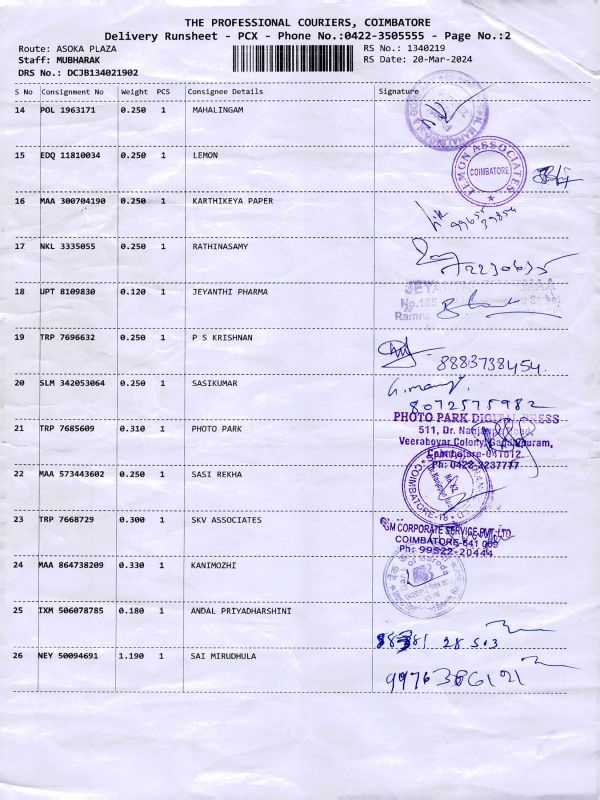 THE PROFESSIONAL COURIERS, COIMBATORE
Delivery Runsheet - PCX - Phone No.:0422-3505555 - Page No.:2
Route: ASOKA PLAZA
RS No.: 1340219
Staff: MUBHARAK
RS Date: 20-Mar-2024
DRS No.: DCJB134021902
S No Consignment No Weight PCS Consignee Details Signature
14 POL 1963171 0.250 1 MAHALINGAM
15 EDQ 11810034 0.250 1 LEMON
LEMON ASSOCIATES
COIMBATORE
16 MAA 300704190 0.250 1 KARTHIKEYA PAPER
17 NKL 3335055 0.250 1 RATHINASAMY
18 UPT 8109830 0.120 1 JEYANTHI PHARMA
No.185
19 TRP 7696632 0.310 1 P S KRISHNAN
8883738454.
20 SLM 342053064 0.250 1 SASIKUMAR
8072575982
21 TRP 7685609 0.310 1 PHOTO PARK
PHOTO PARK DIGITAL PRESS
511, Dr. Nanjappa Road,
Veeraboyar Colony,
Coimbatore-641012.
Ph: 0422-2237777
22 MAA 573443602 0.250 1 SASI REKHA
COIMBATORE-18
23 TRP 7668729 0.300 1 SKV ASSOCIATES
CORPORATE SERVICE PVT LTD
COIMBATORE-641
Ph: 99522-20444
24 MAA 864738209 0.330 1 KANIMOZHI
of Baroda
25 IXM 506078785 0.180 1 ANDAL PRIYADHARSHINI
26 NEY 50094691 1.190 1 SAI MIRUDHULA